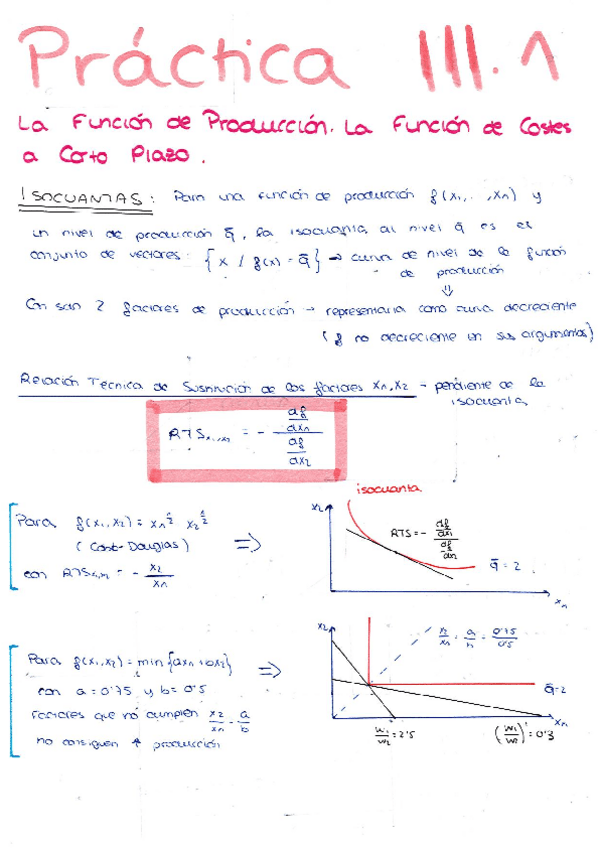 Práctica III.1
La Función de Producción. La Función de Costes
a Corto Plazo.
ISOCUANTAS: Para una función de producción f(x₁,..,xₙ) y
un nivel de producción q̄, la isocuanta al nivel q̄ es el
conjunto de vectores: { x / f(x) = q̄ } → curva de nivel de la función
de producción
⇓
Con san 2 factores de producción → representaría como curva decreciente
(f no decreciente en sus argumentos)
Relación Tecnica de Sustitución de los factores x₁,x₂ - pendiente de la
isocuanta
RTSx₁,x₂ = - (df/dx₁)/(df/dx₂)
isocuanta
Para f(x₁,x₂) = x₁^½ x₂^½
(Cobb-Douglas) ⇒
con RTS = - x₂/x₁
x₂
RTS = - (df/dx₁)/(df/dx₂)
q̄ = 2
x₁
Para f(x₁,x₂) = min {ax₁, bx₂} ⇒
con a = 0'75 y b = 0'5
factores que no cumplen x₂/x₁ = a/b
no consiguen ↑ producción
x₂
x₂/x₁ = a/b = 0'75/0'5
q̄=2
x₁
w₁/w₂ = 2'5
(w₁/w₂)' = 0'3